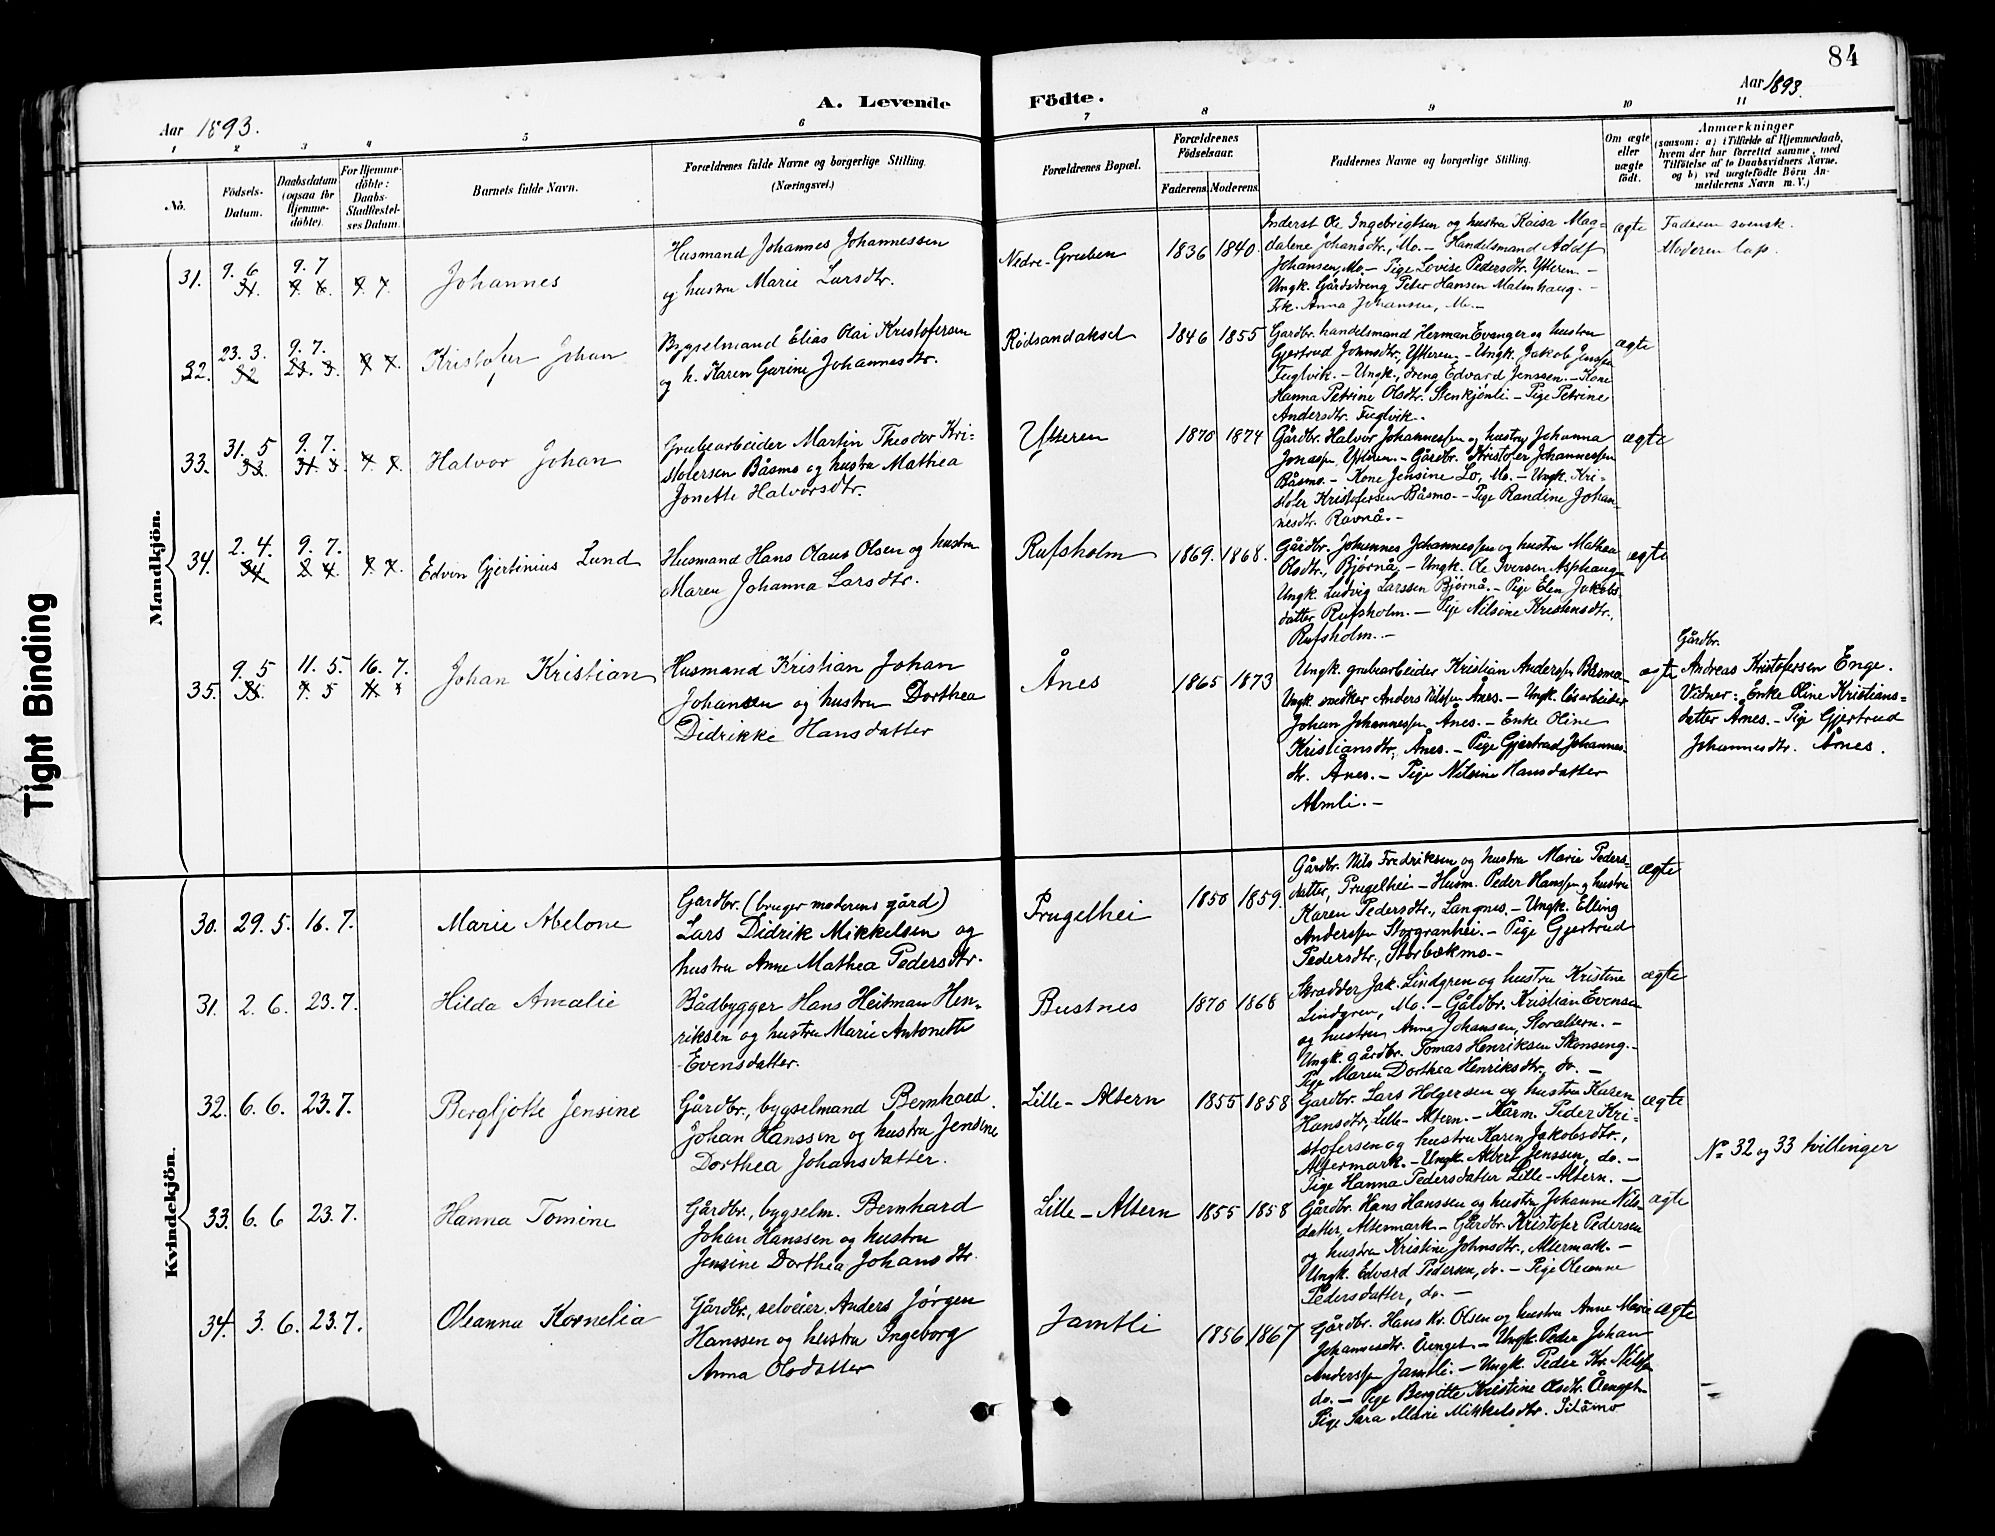 84
A. Levende Födte.
Aar 1893.
Aar 1893.
1 2 3 4 5 6 7 8 9 10 11
No.
Födsels-
Datum.
Daabsdatum
(ogsaa for
Hjemme-
döbte).
For Hjemme-
döbte:
Daabs-
Stadfæstel-
ses Datum.
Barnets fulde Navn.
Forældrenes fulde Navne og borgerlige Stilling.
(Næringsvei.)
Forældrenes Bopæl.
Forældrenes
Födselsaar.
Faderens. Moderens.
Faddernes Navne og borgerlige Stilling.
Om ægte
eller
uægte
födt.
Anmærkninger
(saasom: a) i Tilfælde af Hjemmedaab,
hvem der har forrettet samme, med
Tilföielse af to Daabsvidners Navne,
og b) ved uægtefödte Börn An-
melderens Navn m. V.)
Tight Binding
Mandkjön.
31. 9. 6 9. 7
Johannes
Husmand Johannes Johannessen
og hustru Marie Larsdtr.
Nedre-Gruben
1836 1840
Inderst Ole Ingebrigtsen og hustru Kaisa Mag-
dalene Johansdtr, Mo. - Handelsmand Adolf
Johansen, Mo. - Pige Lovise Pedersdtr. Ytteren. -
Ungk. Gårdsdreng Peter Hansen Malmhaug. -
Frk. Anna Johansen, Mo. -
ægte
Faderen svensk.
Moderen lap.
32. 23. 3. 9. 7.
Kristofer Johan
Bygselmand Elias Olai Kristofersen
og h. Karen Gurine Johannesdtr.
Rødsandaksel
1846 1855
Gardbr. handelsmand Herman Evanger og hustru
Gjertrud Johnsdtr, Ytteren. - Ungk. Jakob Jenssen
Fuglvik. - Ungk., dreng Edvard Jenssen. - Kone
Hanna Petrine Olsdtr. Stenkjønli. - Pige Petrine
Andersdtr. Fuglvik. -
ægte
33. 31. 5 9. 7.
Halvor Johan
Grubearbeider Martin Theodor Kri-
stofersen Båsmo og hustru Mathea
Jonette Halvorsdtr.
Ytteren
1870 1874
Gårdbr. Halvor Johannessen og hustru Johanna
Jonassen, Ytteren. - Gårdbr. Kristofer Johannessen
Båsmo. - Kone Jensine Lo, Mo. - Ungk. Kri-
stofer Kristofersen Båsmo. - Pige Randine Johan-
nesdtr. Ravnå. -
ægte
34. 2. 4. 9. 7.
Edvin Gjertinius Lund
Husmand Hans Olaus Olsen og hustru
Maren Johanna Larsdtr.
Rufsholm
1869. 1868.
Gårdbr. Johannes Johannessen og hustru Mathea
Olsdtr., Bjørnå. - Ungk. Ole Iversen Asphaug
Ungk. Ludvig Larssen Bjørnå. - Pige Elen Jakobs
datter Rufsholm. - Pige Nilsine Kristensdtr.,
Rufsholm. -
ægte
35. 9. 5 11. 5. 16. 7.
Johan Kristian
Husmand Kristian Johan
Johansen og hustru Dorthea
Didrikke Hansdatter
Ånes
1865 1873
Ungk. grubearbeider Kristian Anderssen Båsmo
Ungk. snedker Anders Nilssen Ånes. - Ungk. løsarbeider
Johan Johannessen Ånes. - Enke Oline
Kristiansdtr., Ånes. - Pige Gjertrud Johannes-
dtr. Ånes. - Pige Nilsine Hansdatter
Almli. -
ægte
Gårdbr.
Andreas Kristofersen Enge.
Vidner: Enke Oline Kristians-
datter Ånes. - Pige Gjertrud
Johannesdtr. Ånes.
Kvindekjön.
30. 29. 5. 16. 7.
Marie Abelone
Gardbr. (bruger moderens gård)
Lars Didrik Mikkelsen og
hustru Anne Mathea Pedersdtr.
Prugelhei
1850 1859.
Gårdbr. Nils Fredriksen og hustru Marie Peders-
datter, Prugelhei - Husm. Peder Hanssen og hustru
Karen Pedersdtr., Langnes. - Ungk. Elling
Anderssen Storgranhei. - Pige Gjertrud
Pedersdtr., Storbækmo. -
ægte
31. 2. 6. 23. 7.
Hilda Amalie
Bådbygger Hans Heitman Hen-
riksen og hustru Marie Antonette
Evensdatter.
Bustnes
1870 1868
Skrædder Jak. Lindgren og hustru Kristine
Lindgren, Mo. - Gårdbr. Kristian Evensen
og hustru Anna Johansen, Storaltern. -
Ungk. gårdbr. Tomas Henriksen Skonseng. -
Pige Maren Dorthea Henriksdtr, do. -
ægte
32. 6. 6. 23. 7.
Bergljotte Jensine
Gårdbr., bygselmand Bernhard
Johan Hanssen og hustru Jensine
Dorthea Johansdatter.
Lille-Altern
1855 1858
Gardbr. Lars Holgersen og hustru Karen
Hansdtr, Lille-Altern. - Kårm. Peder Kri-
stofersen og hustru Karen Jakobsdtr.,
Altermark. - Ungk. Albert Jenssen, do. -
Pige Hanna Pedersdatter Lille-Altern. -
ægte
No 32 og 33 tvillinger
33. 6. 6 23. 7.
Hanna Tomine
Gårdbr., bygselm. Bernhard
Johan Hanssen og hustru
Jensine Dorthea Johansdtr.
Lille-Altern
1855 1858
Gårdbr. Hans Hanssen og hustru Johanne Nils-
datter, Altermark - Gårdbr. Kristofer Pedersen
og hustru Kristine Johnsdtr., Altermark. -
Ungk. Edvard Pedersen, do. - Pige Oleanne
Pedersdatter, do. -
ægte
34. 3. 6. 23. 7.
Oleanna Kornelia
Gårdbr., selveier Anders Jørgen
Hanssen og hustru Ingeborg
Anna Olsdatter
Jamtli
1856 1867
Gårdbr. Hans Kr. Olsen og hustru Anne Marie
Johannesdtr. Åenget. - Ungk. Peder Johan
Anderssen Jamtli. - Ungk. Peder Kr. Nilssen
do. - Pige Bergitte Kristine Olsdtr. Åenget.
Pige Sara Marie Mikkelsdtr.
ægte